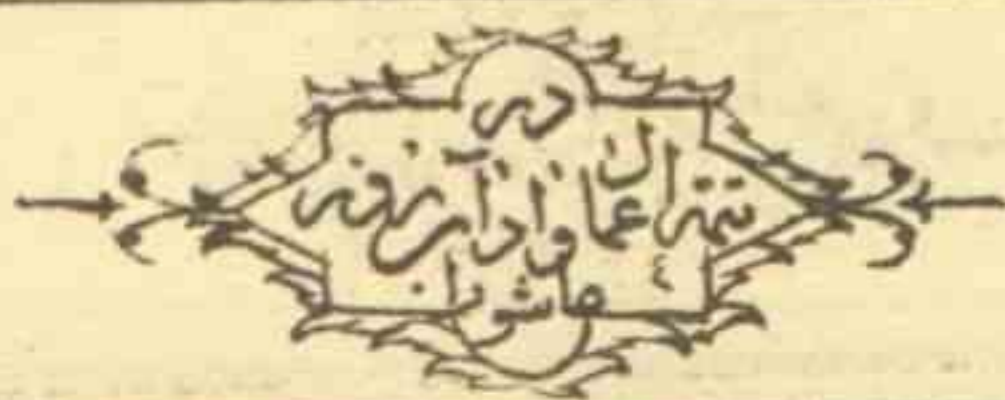 در
تتمه اعمال و آداب روز
عاشورا